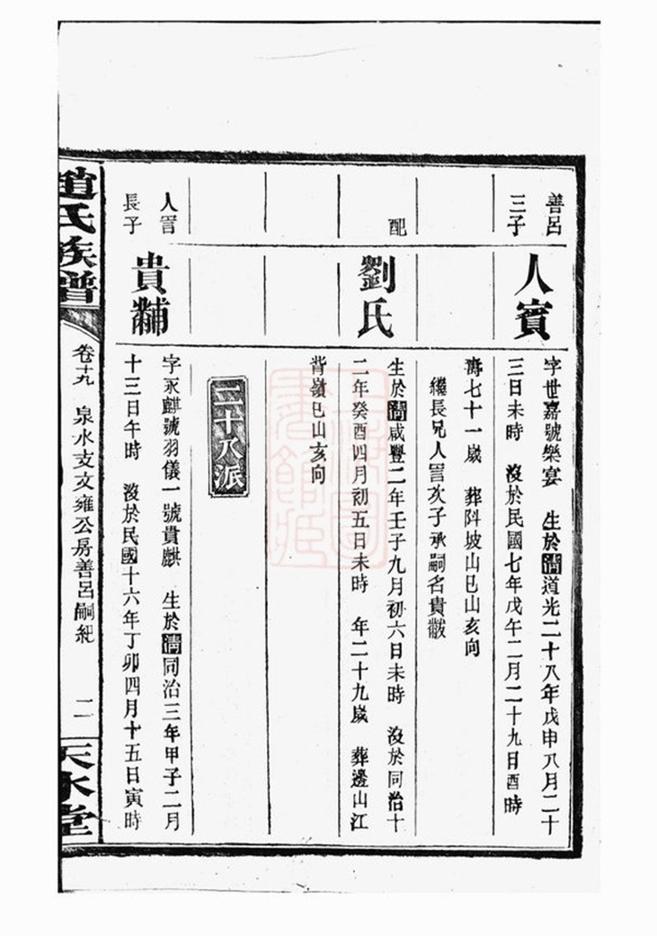 善呂
三子
人賓
字世嘉號樂宴　生於清道光二十八年戊申八月二十
三日未時　沒於民國七年戊午二月二十九日酉時
壽七十一歲　葬阧坡山巳山亥向
繼長兄人官次子承嗣名貴黻
配
劉氏
生於清咸豐二年壬子九月初六日未時　沒於同治十
二年癸酉四月初五日未時　年二十九歲　葬邊山江
背嶺巳山亥向
二十八派
人官
長子
貴黼
字永麒號羽儀一號貴麒　生於清同治三年甲子二月
十三日午時　沒於民國十六年丁卯四月十五日寅時
趙氏族譜
卷十九　泉水支文雍公房善呂嗣紀
二
天水堂